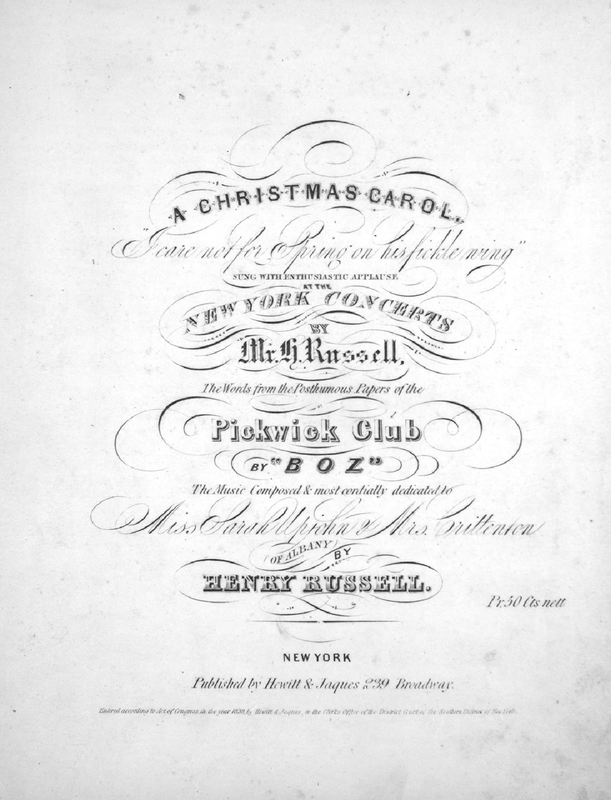 A CHRISTMAS CAROL.
"I care not for Spring on his fickle wing"
SUNG WITH ENTHUSIASTIC APPLAUSE
AT THE
NEW YORK CONCERTS
BY
Mr. H. Russell.
The Words from the Posthumous Papers of the
Pickwick Club
BY "BOZ"
The Music Composed & most cordially dedicated to
Miss Sarah Upjohn & Mrs. Crittenton
OF ALBANY
BY
HENRY RUSSELL.
Pr. 50 Cts nett
NEW YORK
Published by Hewitt & Jaques 239 Broadway.
Entered according to Act of Congress in the year 1838, by Hewitt & Jaques, in the Clerk's Office of the District Court of the Southern District of New York.